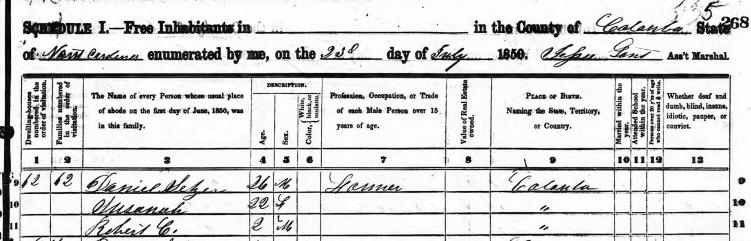 268
SCHEDULE I.—Free Inhabitants in in the County of Catawba State
of North Carolina enumerated by me, on the 23d day of July 1850. Ass't Marshal.
Dwelling-houses numbered in the order of visitation.
Families numbered in the order of visitation.
The Name of every Person whose usual place of abode on the first day of June, 1850, was in this family.
DESCRIPTION.
Age.
Sex.
Color, { White, black, or mulatto.
Profession, Occupation, or Trade of each Male Person over 15 years of age.
Value of Real Estate owned.
PLACE OF BIRTH. Naming the State, Territory, or Country.
Married within the year.
Attended School within the year.
Persons over 20 y'rs of age who cannot read & write.
Whether deaf and dumb, blind, insane, idiotic, pauper, or convict.
1 2 3 4 5 6 7 8 9 10 11 12 13
9 12 12 Daniel Setzer 26 M Farmer Catawba 9
10 Susanah 22 F " 10
11 Robert C. 2 M " 11